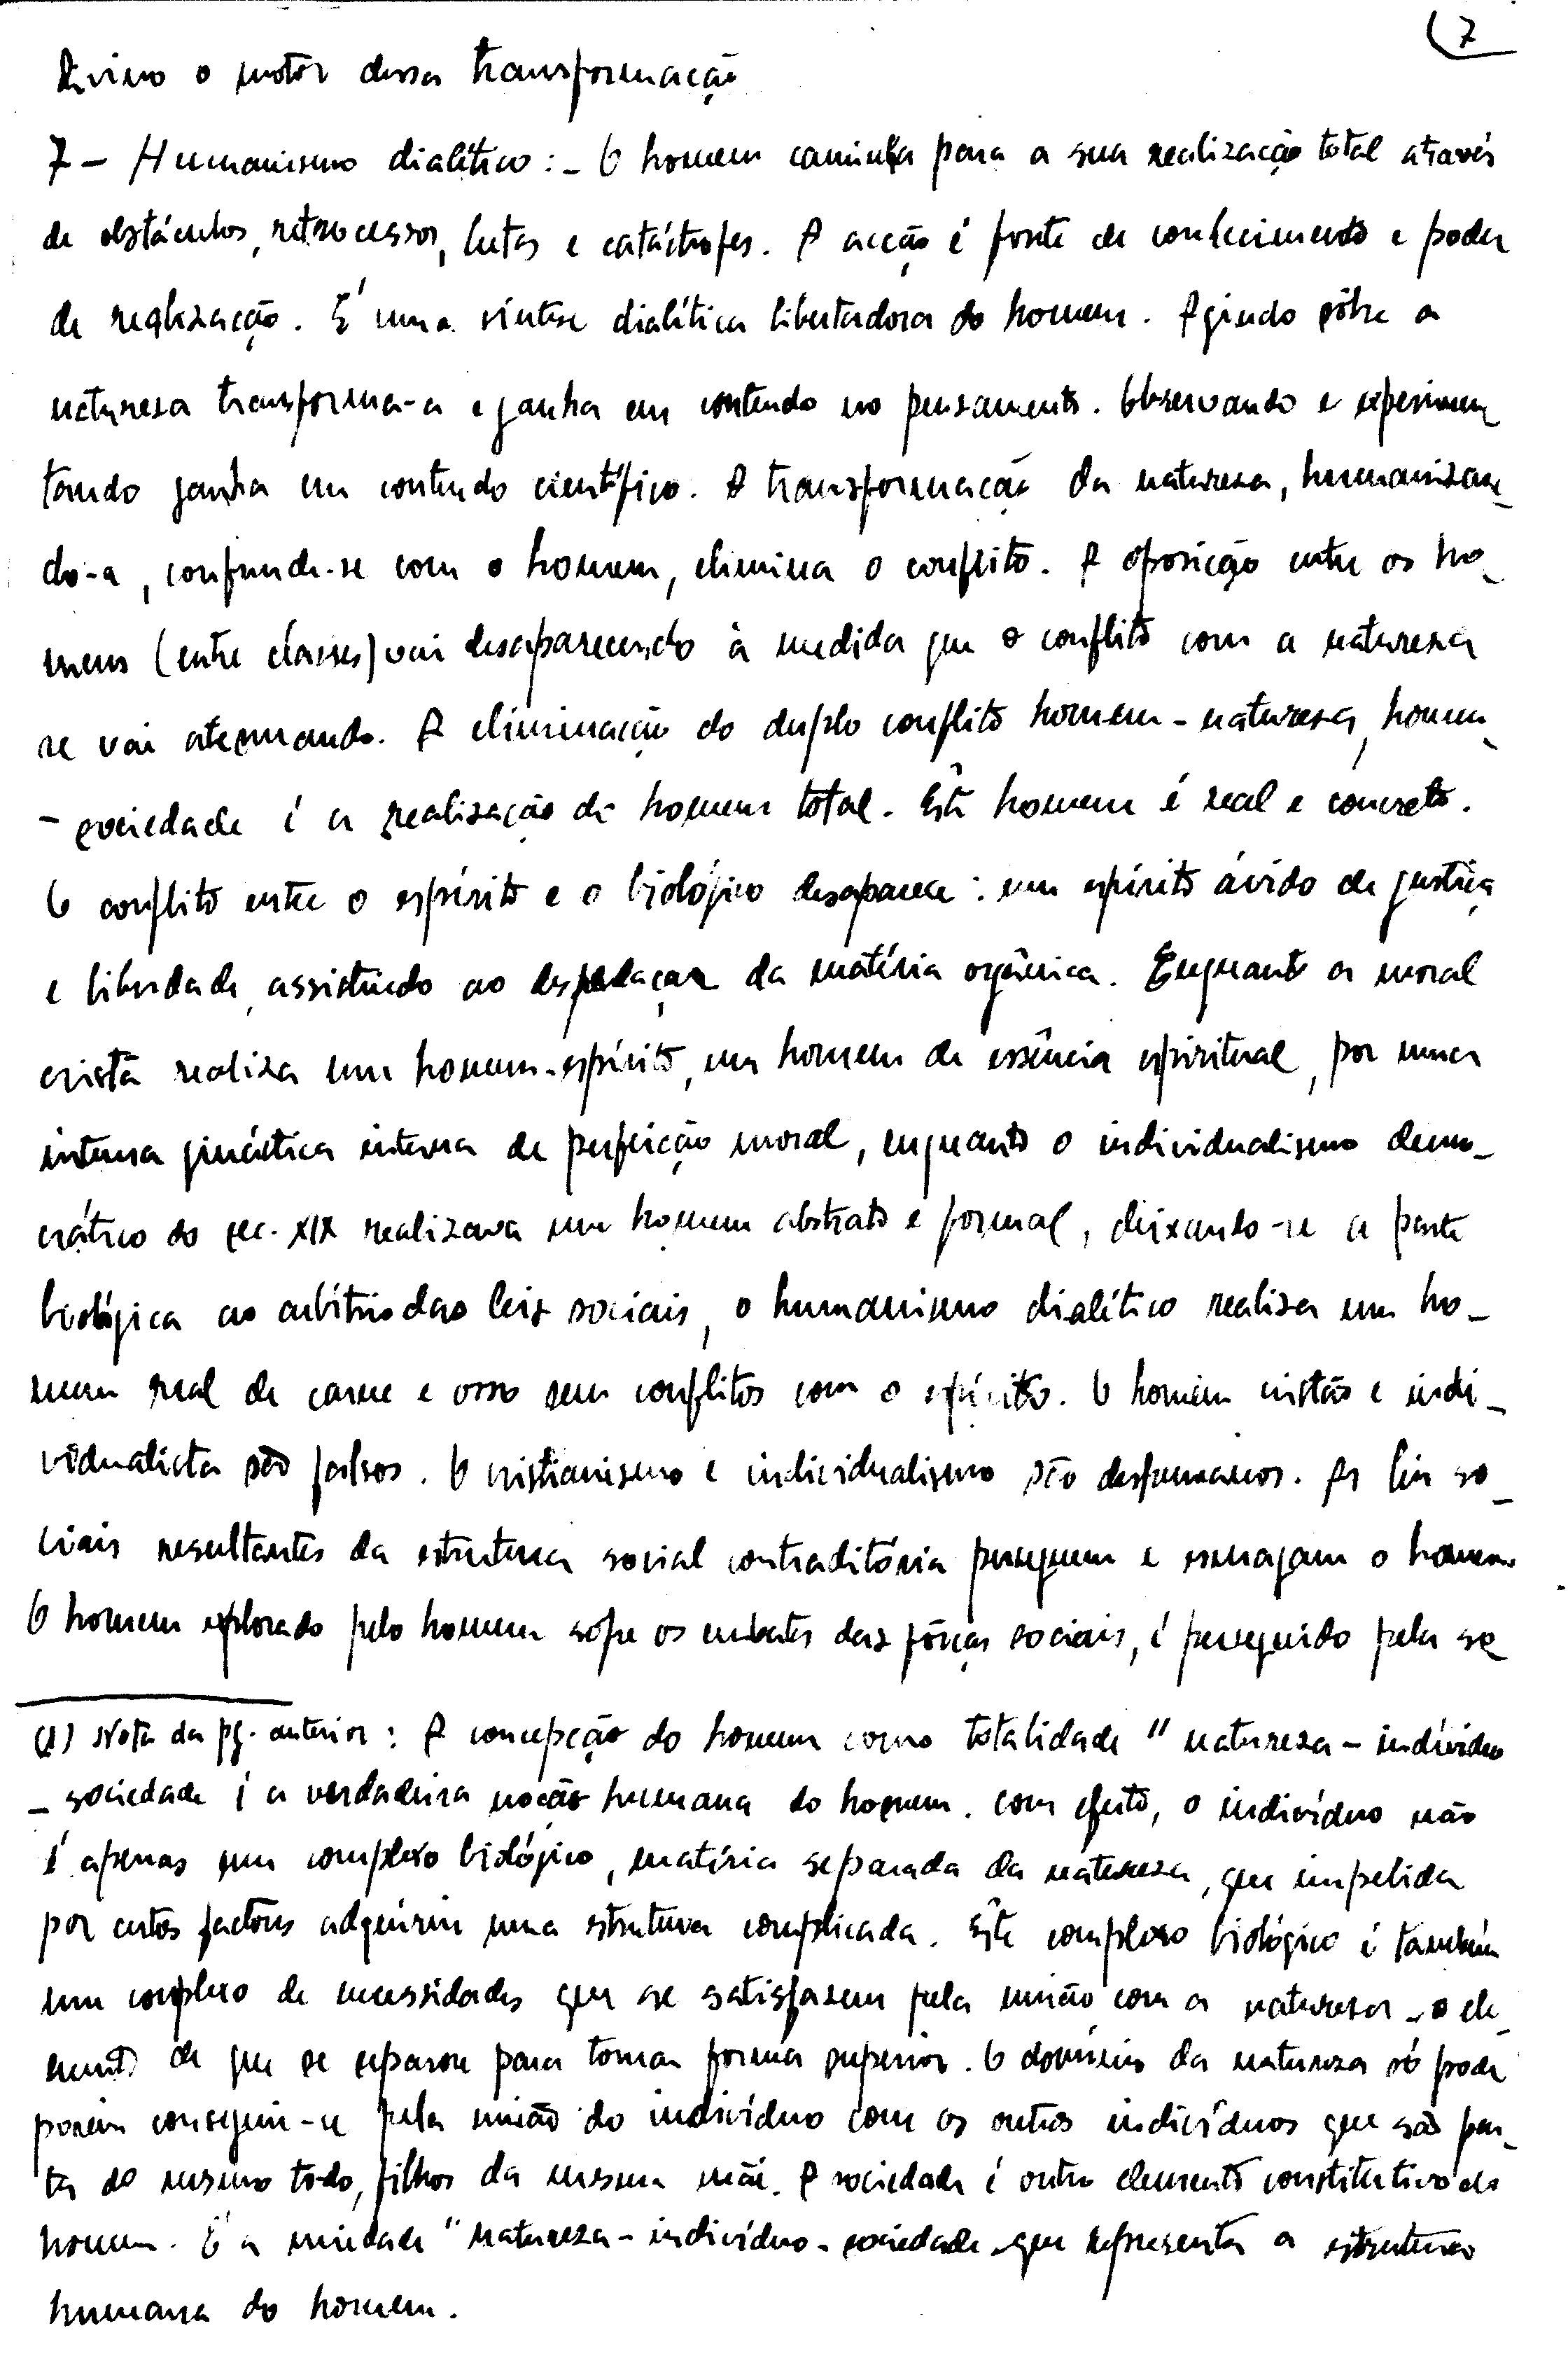 7
Divino o motor dessa transformação
7 - Humanismo dialético: - O homem caminha para a sua realização total através
de obstáculos, retrocessos, lutas e catástrofes. A acção é fonte de conhecimento e poder
de realização. É uma síntese dialética libertadora do homem. Agindo sôbre a
natureza transforma-a e ganha em conteudo no pensamento. Observando e experimen
tando ganha em conteudo científico. A transformação da natureza, humanizan_
do-a, confunde-se com o homem, elimina o conflito. A oposição entre os ho_
mens (entre classes) vai desaparecendo à medida que o conflito com a natureza
se vai atenuando. A eliminação do duplo conflito homem-natureza, homem_
-sociedade é a realização do homem total. Êste homem é real e concreto.
O conflito entre o espírito e o biológico desaparece: um espírito ávido de justiça
e liberdade, assistindo ao despedaçar da matéria orgânica. Enquanto a moral
cristã realiza um homem-espírito, um homem de essência espiritual, por uma
intensa ginástica interna de perfeição moral, enquanto o individualismo demo_
crático do sec. XIX realizava um homem abstrato e formal, deixando-se a parte
biológica ao arbítrio das leis sociais, o humanismo dialético realiza um ho_
mem real de carne e osso sem conflitos com o espírito. O homem cristão e indi_
vidualista são falsos. O cristianismo e individualismo são desumanos. As leis so_
ciais resultantes da estrutura social contraditória perseguem e esmagam o homem.
O homem explorado pelo homem sofre os embates das fôrças sociais, é perseguido pela se
(1) Nota da pg. anterior: A concepção do homem como totalidade " natureza - indivíduo
- sociedade é a verdadeira noção humana do homem. Com efeito, o indivíduo não
é apenas um complexo biológico, matéria separada da natureza, que impelida
por certos factores adquiriu uma estrutura complicada. Êste complexo biológico é também
um complexo de necessidades que se satisfazem pela união com a natureza - o ele_
mento de que se separou para tomar forma superior. O domínio da natureza só pode
porém conseguir-se pela união do indivíduo com os outros indivíduos que são par_
tes do mesmo todo, filhos da mesma mãe. A sociedade é outro elemento constitutivo do
homem. É a unidade " natureza - indivíduo - sociedade que representa a estrutura
humana do homem.